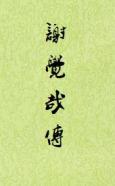 謝覺哉傳